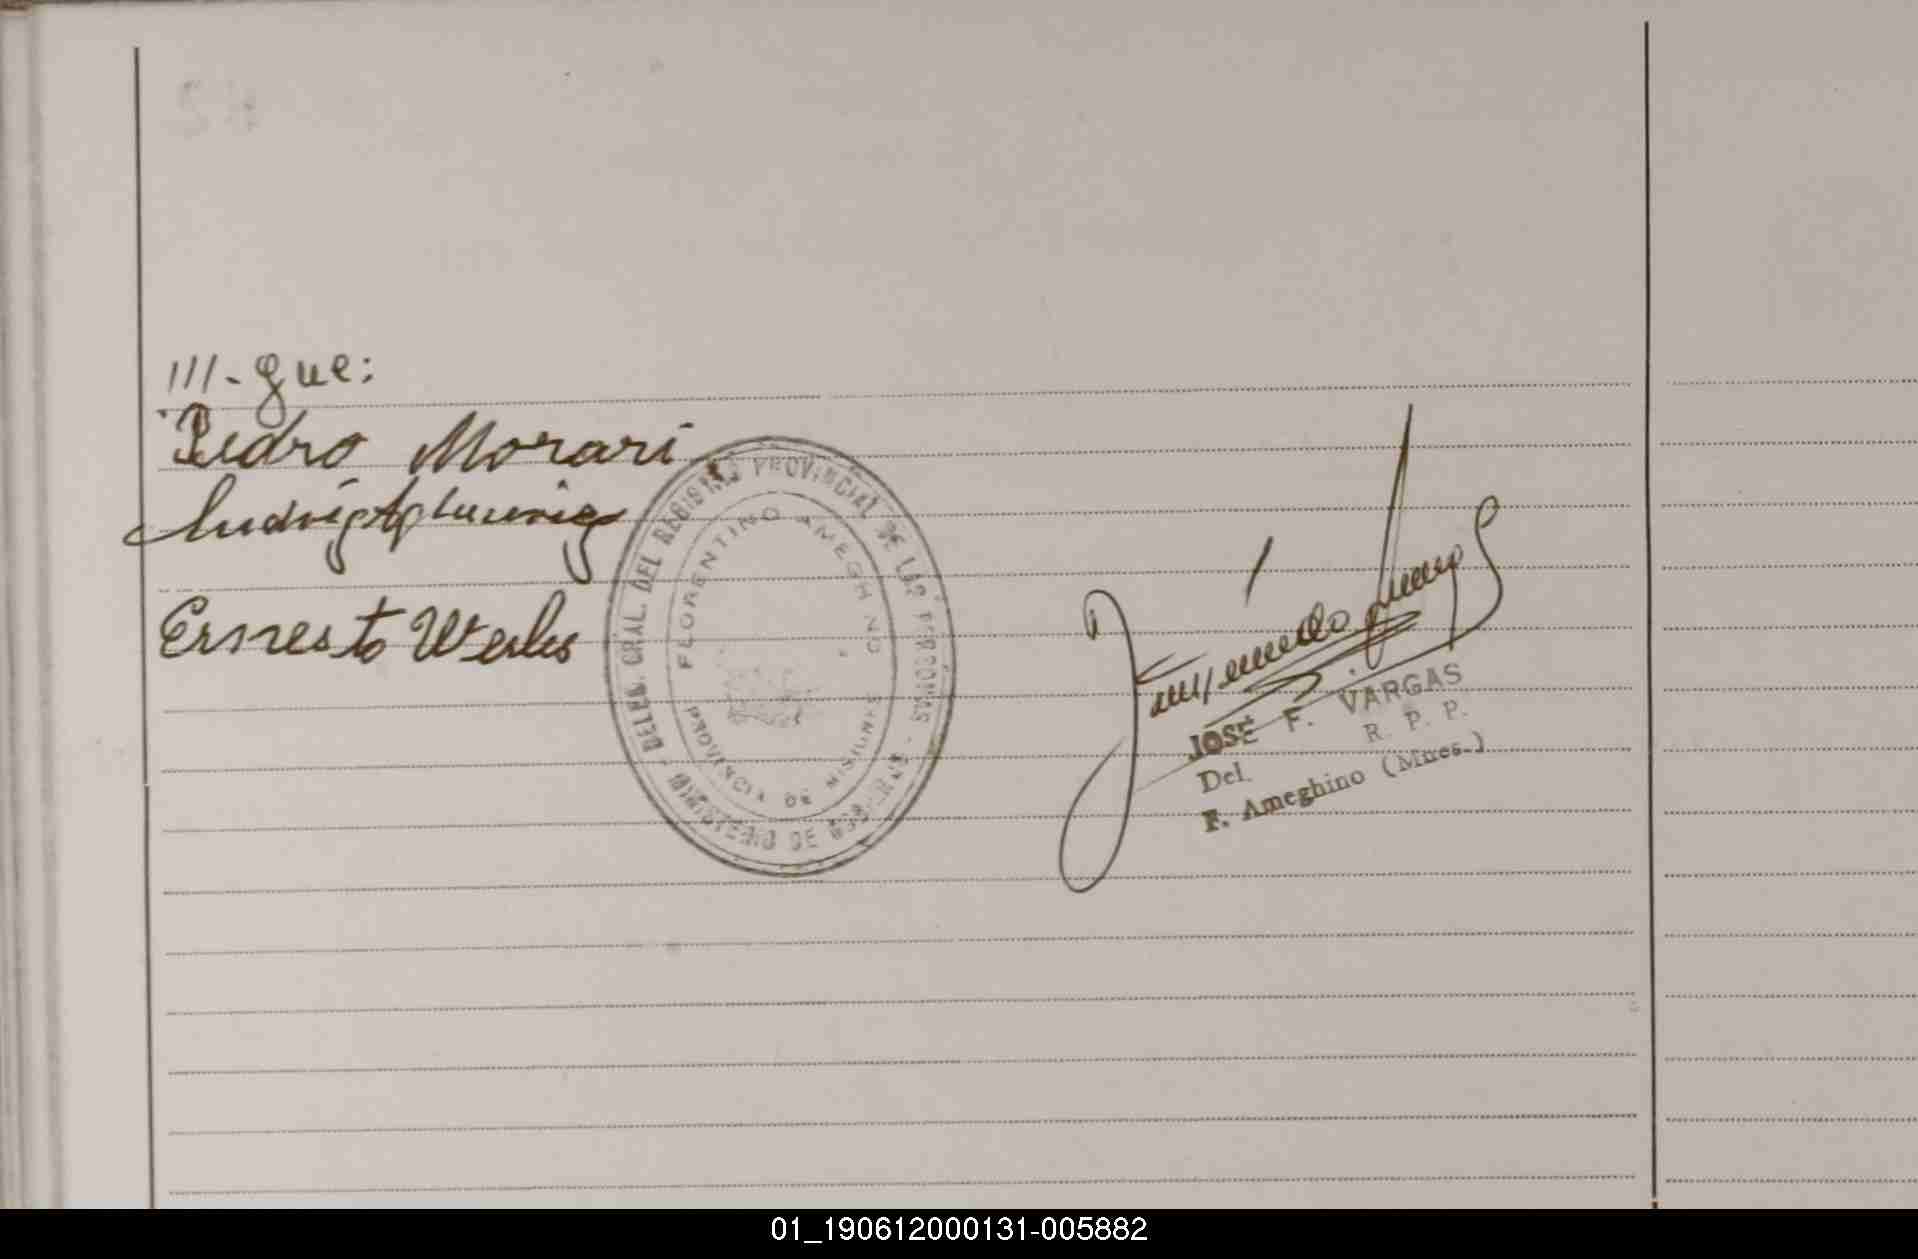 III-que:
Pedro Morari
Ernesto Werles
DELEG. GRAL. DEL REGISTRO PROVINCIAL DE LAS PERSONAS -
MINISTERIO DE GOBIERNO
FLORENTINO AMEGHINO
PROVINCIA DE MISIONES
JOSE F. VARGAS
Del. R. P. P.
F. Ameghino (Mnes.)
01_190612000131-005882